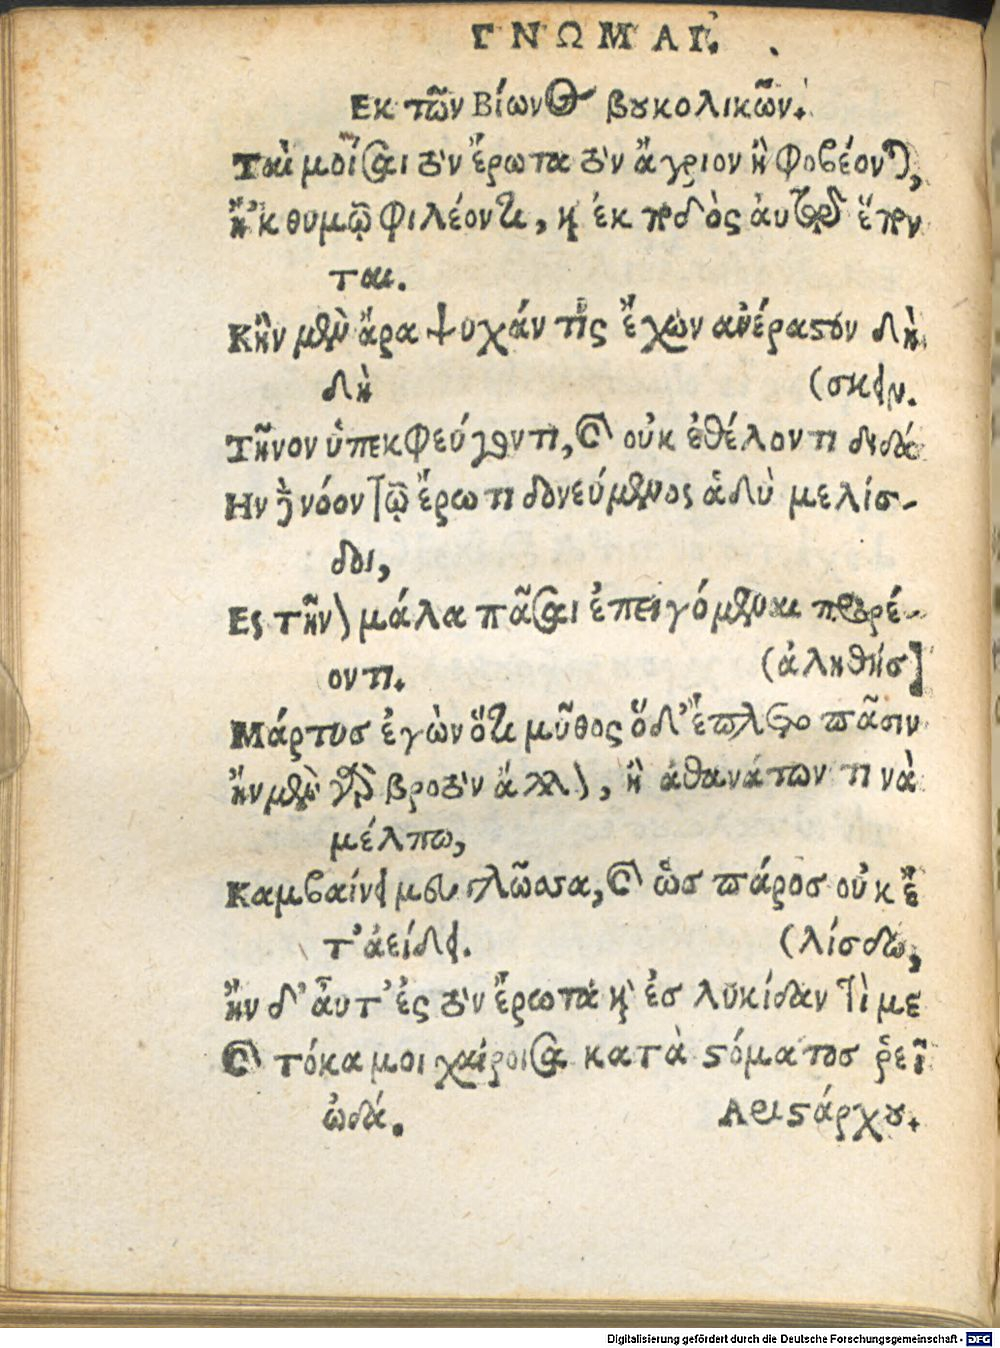 ΓΝΩΜΑΙ.
Εκ τῶν Βίωνος βουκολικῶν.
Ταὶ μοῖσαι τὸν ἔρωτα τὸν ἄγριον ἢ φοβέονται,
ἢ 'κ θυμῶ φιλέοντι, καὶ ἐκ ποδὸς αὐτοῦ ἕπον
ται.
Κἢν μὲν ἄρα ψυχάν τὶς ἔχων ἀνέραστον ὀπη
δὴ
(σκειν.
Τῆνον ὑπεκφεύγοντι, καὶ οὐκ ἐθέλοντι διδά
Ην δὲ νόον τῷ ἔρωτι δονεύμενος ἁδὺ μελίσ-
δοι,
Ες τῆνον μάλα πᾶσαι ἐπειγόμεναι προρέ-
οντι.
(ἀληθής]
Μάρτυσ ἐγὼν ὅτι μῦθος ὅδ' ἔπλετο πᾶσιν
ἢν μὲν γὰρ βροτὸν ἄλλον, ἢ ἀθανάτων τινὰ
μέλπω,
Καμβαίνει μευ γλῶσσα, καὶ ὡσ πάροσ οὐκ ἔ
τ' ἀείδει.
(λίσδω,
ἢν δ' αὖτ' ἐς τὸν ἔρωτα καὶ ἐσ λυκίδαν τὶ με
καὶ τόκα μοι χαίροισα κατὰ στόματοσ ῥεῖ
ὠδά.
Αριστάρχου.
Digitalisierung gefördert durch die Deutsche Forschungsgemeinschaft - DFG